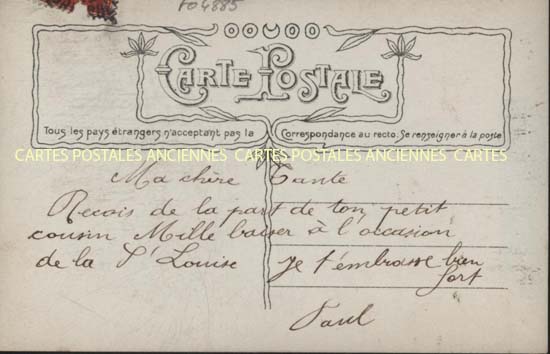 FO4885
CARTE POSTALE
Tous les pays étrangers n'acceptant pas la Correspondance au recto. Se renseigner à la poste
CARTES POSTALES ANCIENNES CARTES POSTALES ANCIENNES CARTES
Ma chère Tante
Recois de la part de ton petit
cousin Mille baiser à l'occasion
de la St Louise Je t'embrasse bien
fort
Paul